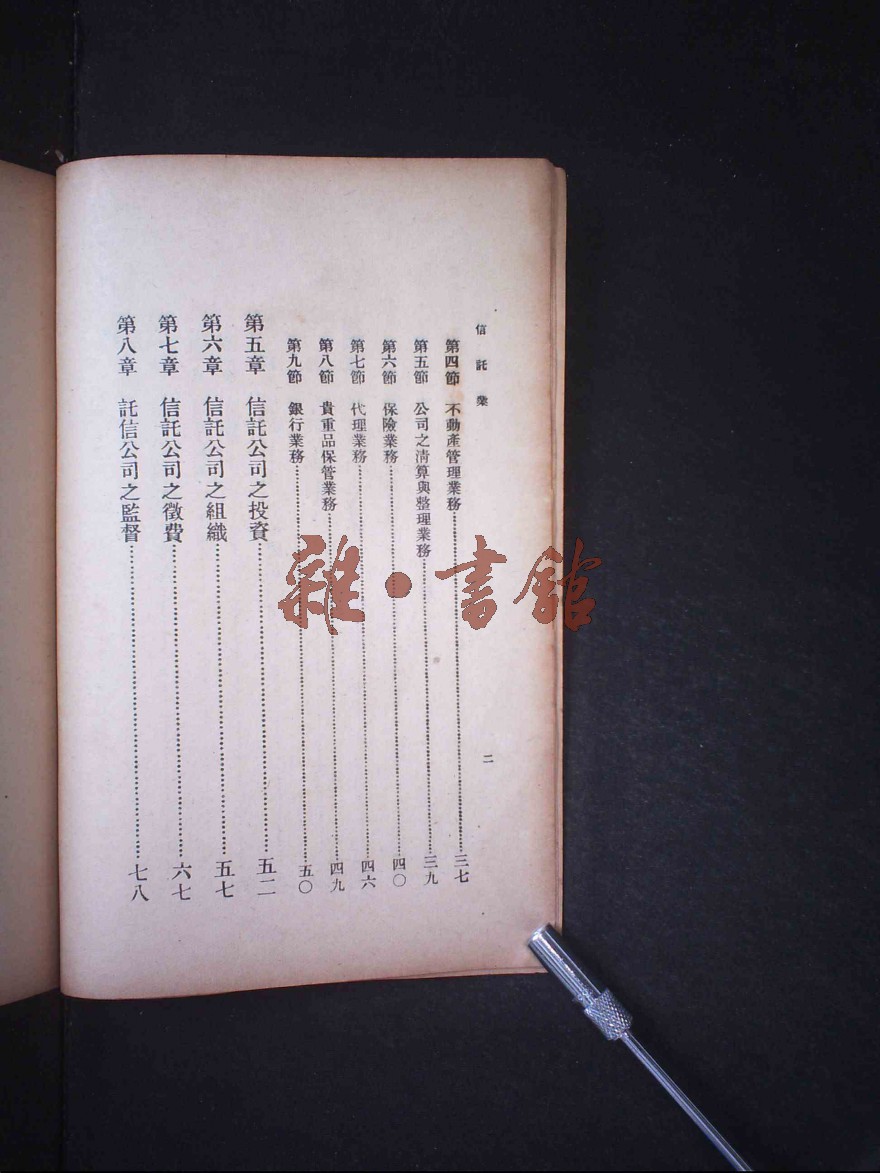 信託業
二
第四節 不動產管理業務……三七
第五節 公司之清算與整理業務……三九
第六節 保險業務……四〇
第七節 代理業務……四六
第八節 貴重品保管業務……四九
第九節 銀行業務……五〇
第五章 信託公司之投資……五二
第六章 信託公司之組織……五七
第七章 信託公司之徵費……六七
第八章 託信公司之監督……七八
雜·書館